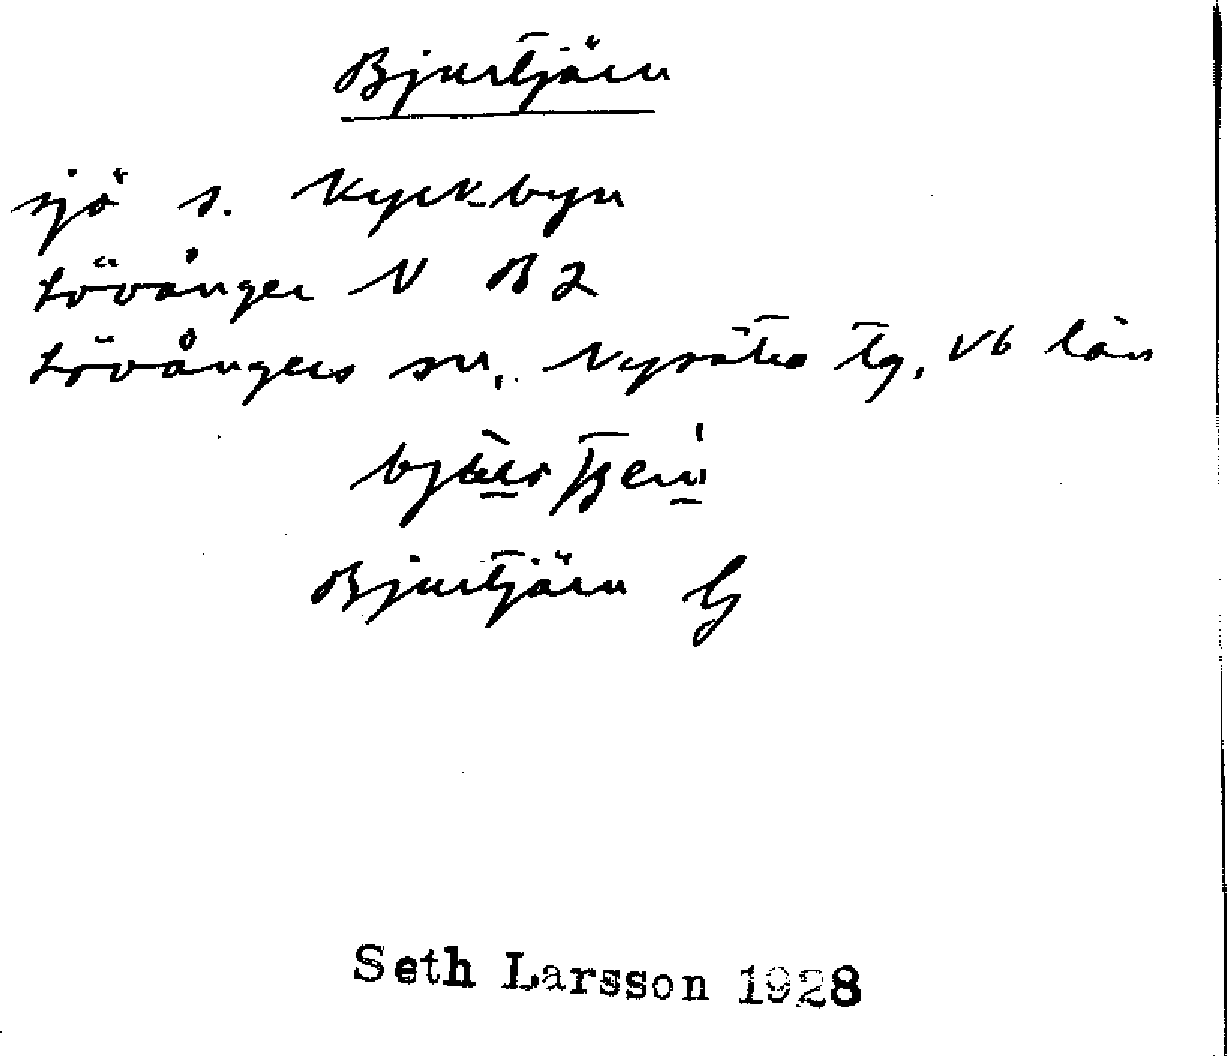 Bjurtjärn
sjö s. Kyckbyn
Lövånger N B 2
Lövångers sn, Nysätra tg, Vb län
Bjurtjärn G
Seth Larsson 1928